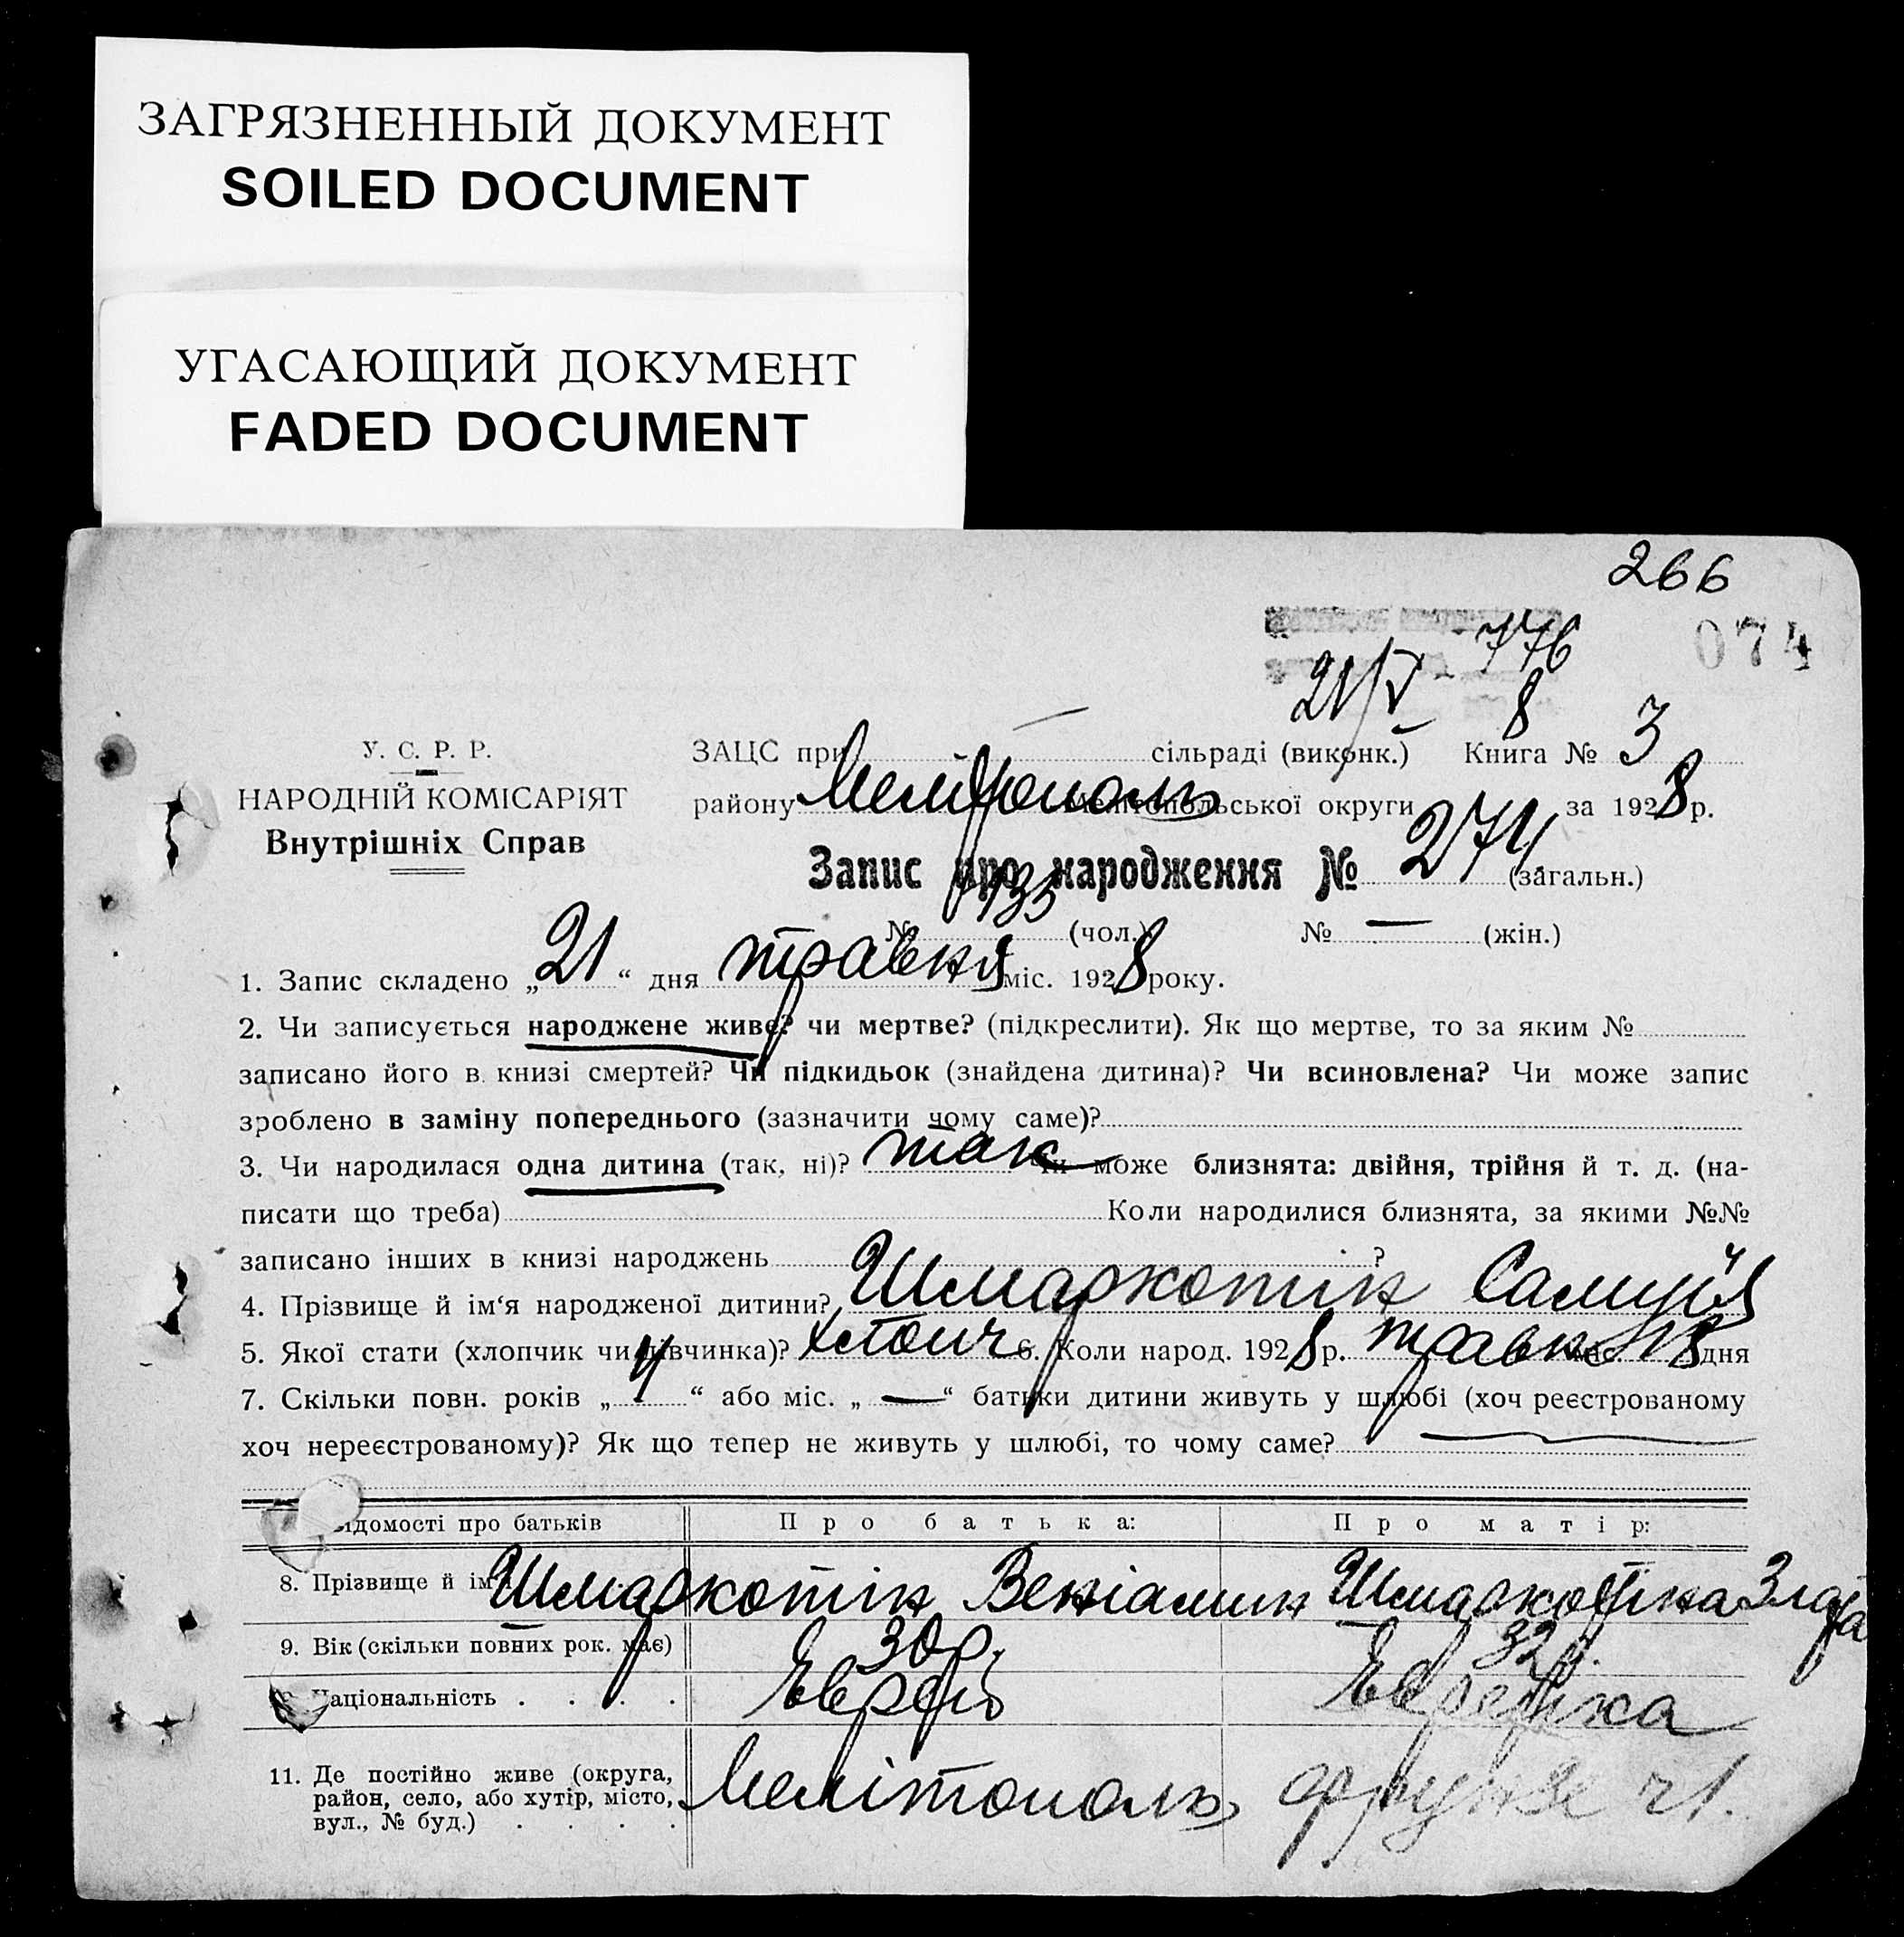 ЗАГРЯЗНЕННЫЙ ДОКУМЕНТ
SOILED DOCUMENT
УГАСАЮЩИЙ ДОКУМЕНТ
FADED DOCUMENT
266
074
776
21/V 8
У. С. Р. Р.
НАРОДНІЙ КОМІСАРІЯТ
Внутрішніх Справ
ЗАЦС при сільраді (виконк.) Книга № 3
району Мелітополь Мелітопольської округи за 1928 р.
Запис про народження № 274 (загальн.)
№ 135 (чол.) № — (жін.)
1. Запис складено „21“ дня травня міс. 1928 року.
2. Чи записується народжене живе? чи мертве? (підкреслити). Як що мертве, то за яким №
записано його в книзі смертей? Чи підкидьок (знайдена дитина)? Чи всиновлена? Чи може запис
зроблено в заміну попереднього (зазначити чому саме)?
3. Чи народилася одна дитина (так, ні)? так Чи може близнята: двійня, трійня й т. д. (на-
писати що треба) Коли народилися близнята, за якими №№
записано інших в книзі народжень ?
4. Прізвище й ім‘я народженої дитини? Шмаркотін Самуїл
5. Якої стати (хлопчик чи дівчинка)? хлопч 6. Коли народ. 1928 р. травня міс. 18 дня
7. Скільки повн. років „4“ або міс. „—“ батьки дитини живуть у шлюбі (хоч реєстрованому
хоч нереєстрованому)? Як що тепер не живуть у шлюбі, то чому саме?
Відомості про батьків Про батька: Про матір:
8. Прізвище й ім‘я Шмаркотін Веніамин Шмаркотіна Злата
9. Вік (скільки повних рок. має) 30 р. 32 р.
10. Національність . . . . Еврей Еврейка
11. Де постійно живе (округа,
район, село, або хутір, місто,
вул., № буд.) . . . . Мелітополь, Фрунзе 21.